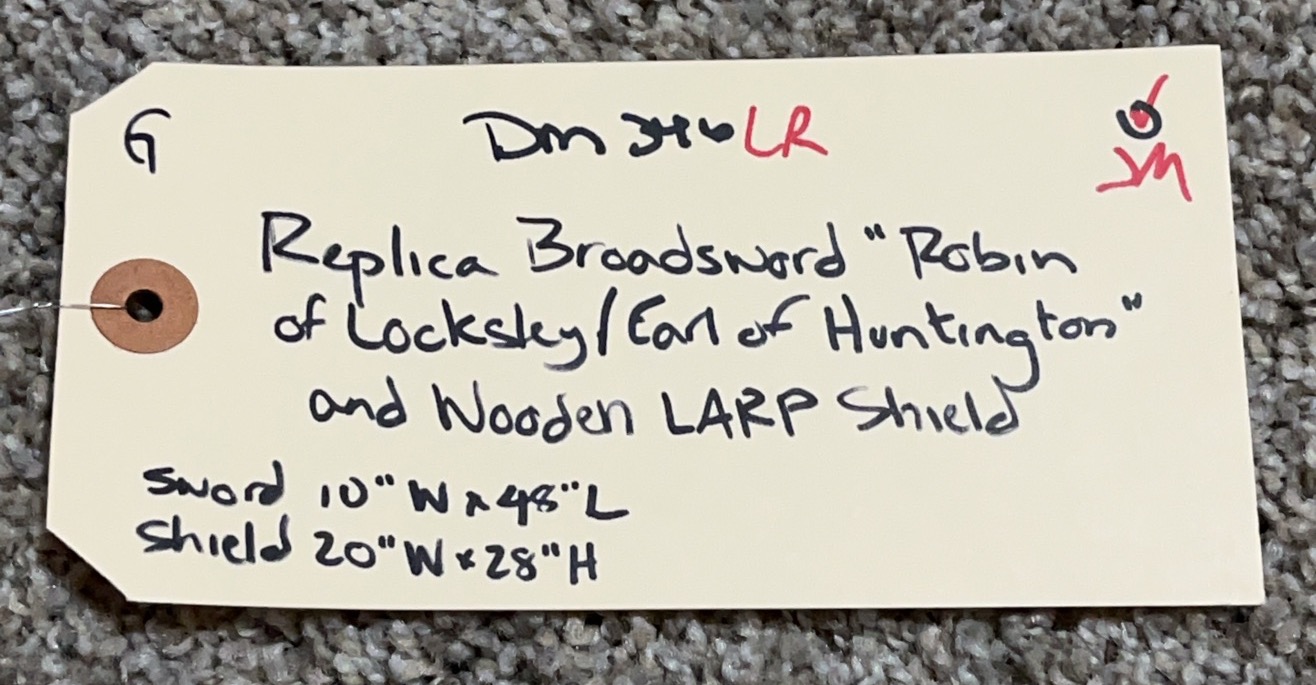 G
Dm 346 LR
JM
Replica Broadsword "Robin
of Locksley/Earl of Huntington"
and Wooden LARP Shield
Sword 10" W x 48" L
Shield 20" W x 28" H